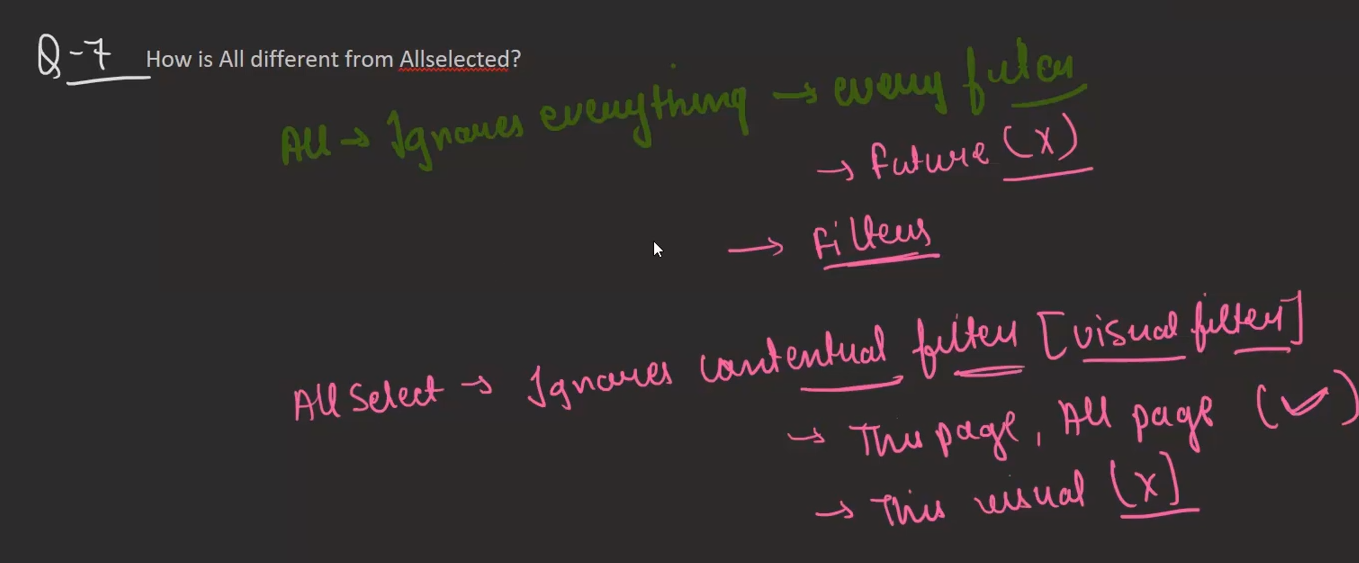 Q-7 How is All different from Allselected?
All → Ignores everything → every filter
→ Future (X)
→ Filters
All Select → Ignores contentual filter [visual filter]
→ This page, All page (✓)
→ This visual (X)